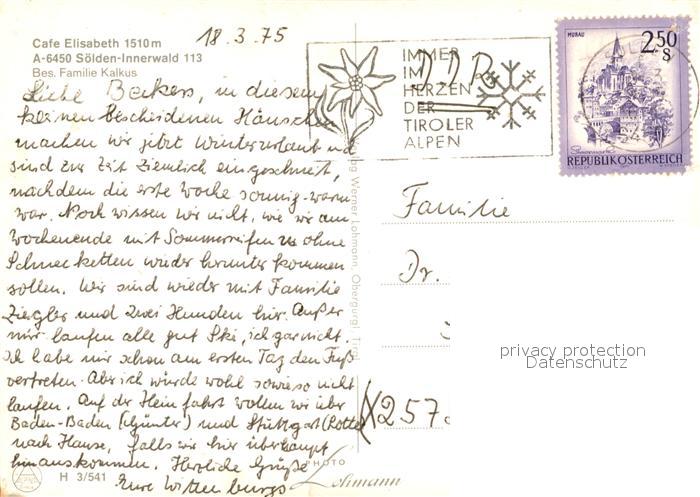 18.3.75
Cafe Elisabeth 1510 m
A-6450 Sölden-Innerwald 113
Bes. Familie Kalkus
Liebe Beckers, in diesem
kleinen bescheidenen Häuschen
machen wir jetzt Winterurlaub und
sind zur Zeit ziemlich eingeschneit,
nachdem die erste Woche sonnig-warm
war. Noch wissen wir nicht, wie wir am
Wochenende mit Sommerreifen u. ohne
Schneeketten wieder herunter kommen
sollen. Wir sind wieder mit Familie
Ziegler und zwei Hunden hier. Außer
mir laufen alle gut Ski, ich gar nicht.
Ich habe mir schon am ersten Tag den Fuß
vertreten. Aber ich würde wohl sowieso nicht
laufen. Auf der Heimfahrt wollen wir über
Baden-Baden (Günter) und Stuttgart
nach Hause, falls wir hier überhaupt
hinauskommen. Herzliche Grüße
Eure Wittenburgs
H 3/541
PHOTO
Lohmann
Verlag Werner Lohmann, Obergurgl, Tirol
IMMER
IM
HERZEN
DER
TIROLER
ALPEN
DDR
MURAU
2.50
S
REPUBLIK ÖSTERREICH
Familie
Dr.
X257
privacy protection
Datenschutz